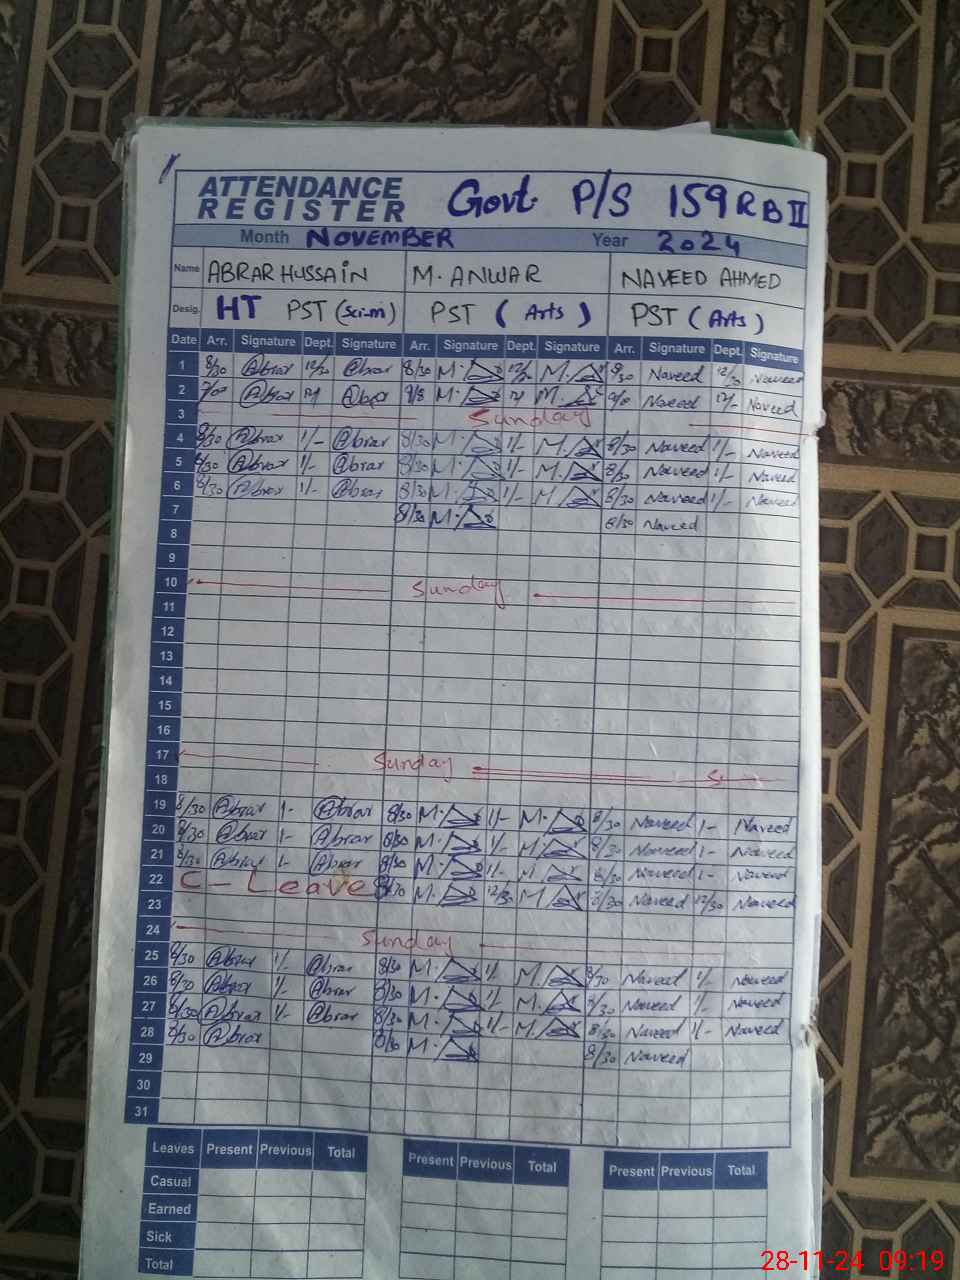 ATTENDANCE REGISTER Govt. P/S 159 RB II
Month NOVEMBER Year 2024
Name ABRAR HUSSAIN M. ANWAR NAVEED AHMED
Desig. HT PST (Sci-m) PST (Arts) PST (Arts)
Date Arr. Signature Dept. Signature Arr. Signature Dept. Signature Arr. Signature Dept. Signature
1 8/30 Abrar 12/30 Abrar 8/30 M. 12/30 M. 8/30 Naveed 12/30 Naveed
2 Abrar Abrar M. M. Naveed 12/- Naveed
3 Sunday
4 8/30 Abrar 1/- Abrar 8/30 M. 1/- M. 8/30 Naveed 1/- Naveed
5 8/30 Abrar 1/- Abrar 8/30 M. 1/- M. 8/30 Naveed 1/- Naveed
6 8/30 Abrar 1/- Abrar 8/30 M. 1/- M. 8/30 Naveed 1/- Naveed
7 8/30 M. 8/30 Naveed
8
9
10 Sunday
11
12
13
14
15
16
17 Sunday
18
19 8/30 Abrar 1- Abrar 8/30 M. 1/- M. 8/30 Naveed 1- Naveed
20 8/30 Abrar 1- Abrar 8/30 M. 1/- M. 8/30 Naveed 1- Naveed
21 8/30 Abrar 1- Abrar 8/30 M. 1/- M. 8/30 Naveed 1- Naveed
22 C - Leave 8/30 M. 12/30 M. 8/30 Naveed 12/30 Naveed
23
24 Sunday
25 8/30 Abrar 1/- Abrar 8/30 M. 1/- M. 8/30 Naveed 1/- Naveed
26 8/30 Abrar 1/- Abrar 8/30 M. 1/- M. 8/30 Naveed 1/- Naveed
27 8/30 Abrar 1/- Abrar 8/30 M. 1/- M. 8/30 Naveed 1/- Naveed
28 8/30 Abrar 8/30 M. 8/30 Naveed
29
30
31
Leaves Present Previous Total Present Previous Total Present Previous Total
Casual
Earned
Sick
Total
28-11-24 09:19